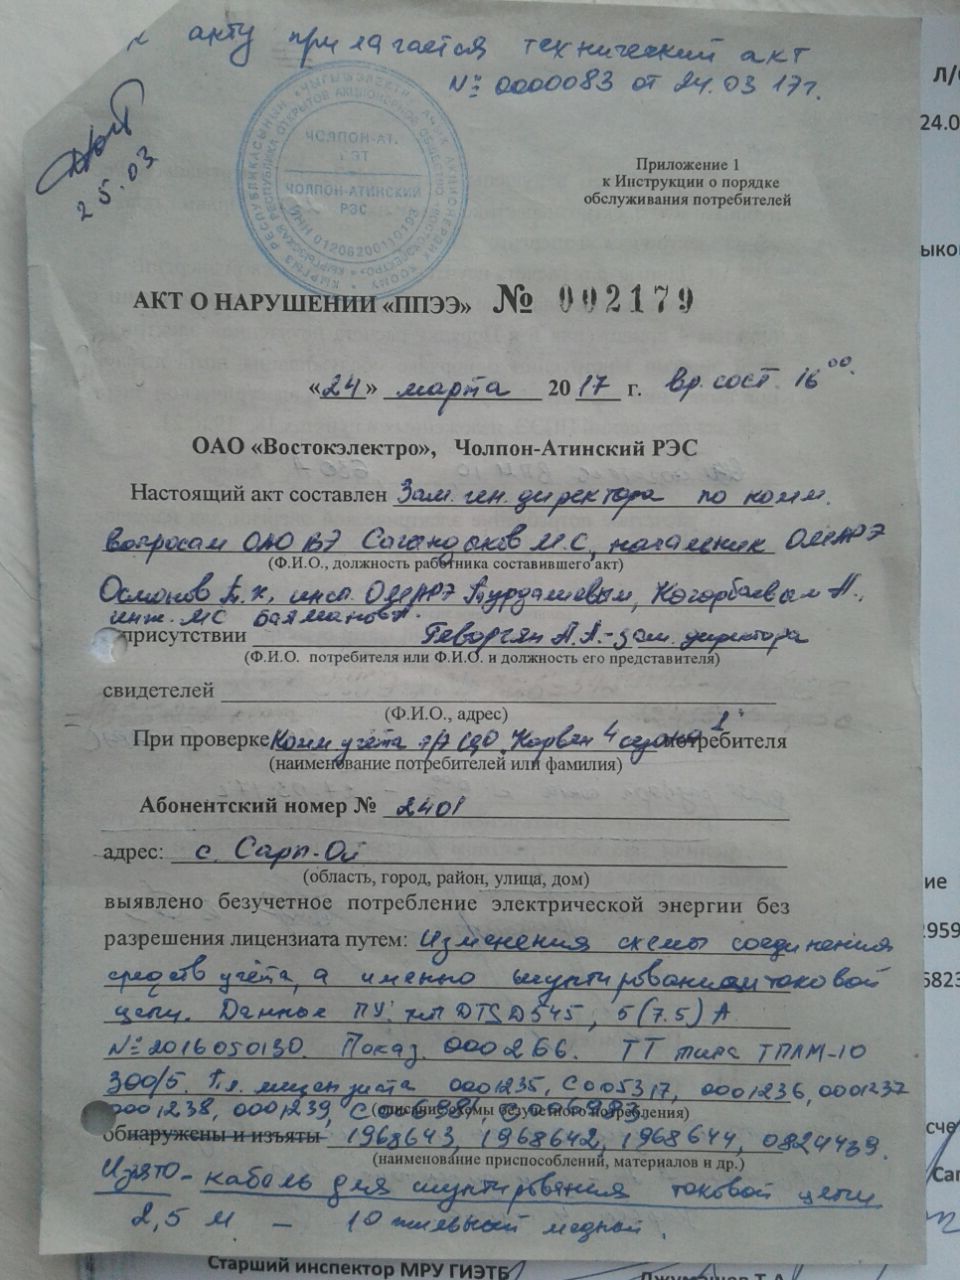 к акту прилагается технический акт
№ 0000083 от 24.03 17г.
25.03
ЧОЛПОН-АТ.
РЭТ
ЧОЛПОН-АТИНСКИЙ
РЭС
ИНН 01206200110193
Приложение 1
к Инструкции о порядке
обслуживания потребителей
АКТ О НАРУШЕНИИ «ППЭЭ» № 002179
«24» марта 2017 г. вр. сост. 16 00.
ОАО «Востокэлектро», Чолпон-Атинский РЭС
Настоящий акт составлен Зам. ген. директора по комм.
вопросам ОАО ВЭ Сагандыков М.С, начальник
(Ф.И.О., должность работника составившего акт)
Осмонов инсп. Когорбаевым А.,
инж. МС Баяманов
присутствии Геворгян А.А.-зам. директора
(Ф.И.О. потребителя или Ф.И.О. и должность его представителя)
свидетелей
(Ф.И.О., адрес)
При проверке Комм учёта 4 сезона потребителя
(наименование потребителей или фамилия)
Абонентский номер № 2401
адрес: с. Сары-Ой
(область, город, район, улица, дом)
выявлено безучетное потребление электрической энергии без
разрешения лицензиата путем: Изменения схемы соединения
средств учёта, а именно шунтирования токовой
цепи. Данные ПУ: тип DTSD545, 5(7.5)А
№ 2016050130. Показ. 000266. ТТ типа ТПЛМ-10
300/5. Пл. лицензиата 0001235, С005317, 0001236, 0001237
0001238, 0001239,
(описание схемы безучетного потребления)
обнаружены и изъяты 1968643, 1968642, 1968644, 0824439.
(наименование приспособлений, материалов и др.)
Изъято - кабель для шунтирования токовой цепи
2,5 м - 10 жильный медный.
Л/
24.0
ыко
ие
2959
6823
сче
Са
Старший инспектор МРУ ГИЭТБ
Джумашев Т.А.